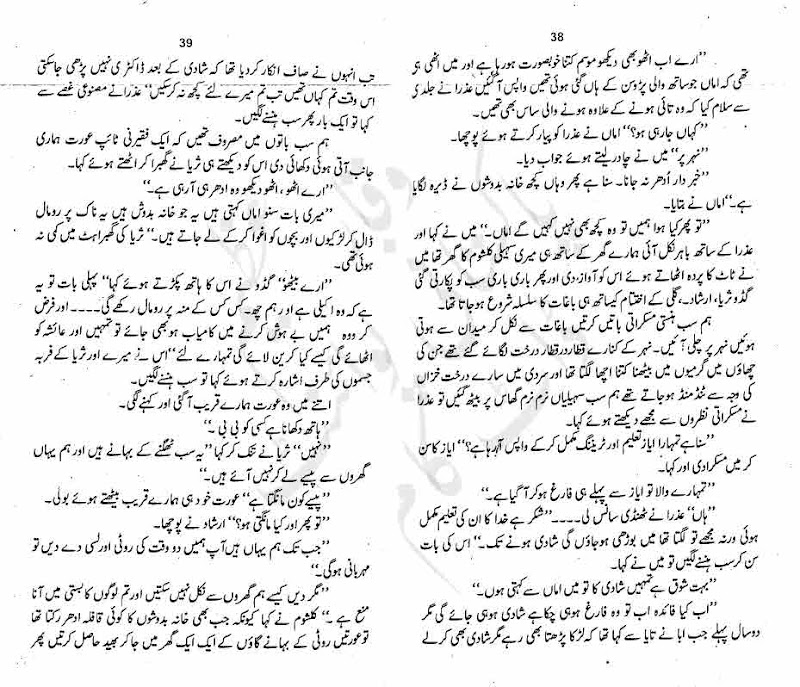 38
”ارے اب اٹھو بھی دیکھو موسم کتنا خوبصورت ہو رہا ہے اور میں اٹھی ہی
تھی کہ اماں جو ساتھ والی پڑوسن کے ہاں گئی ہوئی تھیں واپس آ گئیں عذرا نے جلدی
سے سلام کیا کہ وہ تائی ہونے کے علاوہ ہونے والی ساس بھی تھیں۔
”کہاں جا رہی ہو؟“ اماں نے عذرا کو پیار کرتے ہوئے پوچھا۔
”نہر پر“ میں نے چادر لیتے ہوئے جواب دیا۔
”خبردار اُدھر نہ جانا۔ سنا ہے پھر وہاں کچھ خانہ بدوشوں نے ڈیرہ لگایا
ہے۔“ اماں نے بتایا۔
”تو پھر کیا ہوا ہمیں تو وہ کچھ بھی نہیں کہیں گے اماں۔“ میں نے کہا اور
عذرا کے ساتھ باہر نکل آئی ہمارے گھر کے ساتھ ہی میری سہیلی کلثوم کا گھر تھا میں
نے ٹاٹ کا پردہ اٹھاتے ہوئے اس کو آواز دی اور پھر باری باری سب کو پکارتی گئی
گڈو ثریا، ارشاد۔ گلی کے اختتام کیساتھ ہی باغات کا سلسلہ شروع ہو جاتا تھا۔
ہم سب ہنستی مسکراتی باتیں کرتیں باغات سے نکل کر میدان سے ہوتی
ہوئیں نہر پر چلی آئیں۔ نہر کے کنارے قطار در قطار درخت لگائے گئے تھے جن کی
چھاؤں میں گرمیوں میں بیٹھنا کتنا اچھا لگتا تھا اور سردی میں سارے درخت خزاں
کی وجہ سے ٹنڈ منڈ ہو جاتے تھے ہم سب سہیلیاں نرم نرم گھاس پر بیٹھ گئیں تو عذرا
نے مسکراتی نظروں سے مجھے دیکھتے ہوئے کہا۔
”سنا ہے تمہارا ایاز تعلیم اور ٹریننگ مکمل کر کے واپس آ رہا ہے؟“ ایاز کا سن
کر میں مسکرا دی اور کہا۔
”تمہارے والا تو ایاز سے پہلے ہی فارغ ہو کر آ گیا ہے۔“
”ہاں“ عذرا نے ٹھنڈی سانس لی۔۔۔۔ ”شکر ہے خدا کا ان کی تعلیم مکمل
ہوئی ورنہ مجھے تو لگتا تھا میں بوڑھی ہو جاؤں گی شادی ہونے تک۔“ اس کی بات
سن کر سب ہنسنے لگیں تو میں نے کہا۔
”بہت شوق ہے تمہیں شادی کا تو میں اماں سے کہتی ہوں۔“
”اب کیا فائدہ اب تو وہ فارغ ہو ہی چکا ہے شادی ہو ہی جائے گی مگر
دو سال پہلے جب ابا نے تایا سے کہا تھا کہ لڑکا پڑھتا بھی رہے مگر شادی بھی کر لے
39
تب انہوں نے صاف انکار کر دیا تھا کہ شادی کے بعد ڈاکٹری نہیں پڑھی جا سکتی
اس وقت تم کہاں تھیں تب تم میرے لئے کچھ نہ کر سکیں“ عذرا نے مصنوعی غصے سے
کہا تو ایک بار پھر سب ہنسنے لگیں۔
ہم سب باتوں میں مصروف تھیں کہ ایک فقیرنی ٹائپ عورت ہماری
جانب آتی ہوئی دکھائی دی اس کو دیکھتے ہی ثریا نے گھبرا کر اٹھتے ہوئے کہا۔
”ارے اٹھو، اٹھو دیکھو وہ ادھر ہی آ رہی ہے۔“
”میری بات سنو اماں کہتی ہیں یہ جو خانہ بدوش ہیں یہ ناک پر رومال
ڈال کر لڑکیوں اور بچوں کو اغوا کر کے لے جاتے ہیں۔“ ثریا کی گھبراہٹ میں کمی نہ
ہوئی تھی۔
”ارے بیٹھو“ گڈو نے اس کا ہاتھ پکڑتے ہوئے کہا ”پہلی بات تو یہ
ہے کہ وہ اکیلی ہے او رہم چھ۔ کس کس کے منہ پر رومال رکھے گی۔۔۔۔ اور فرض
کر ووہ ہمیں بے ہوش کرنے میں کامیاب ہو بھی جائے تو تمہیں اور عائشہ کو
اٹھائے گی کیسے کیا کرین لائے گی تمہارے لئے“ اس نے میرے اور ثریا کے فربہ
جسموں کی طرف اشارہ کرتے ہوئے کہا تو سب ہنسنے لگیں۔
اتنے میں وہ عورت ہمارے قریب آ گئی اور کہنے لگی۔
”ہاتھ دکھانا ہے کسی کو بی بی۔“
”نہیں“ ثریا نے تنک کر کہا ”یہ سب ٹھگنے کے بہانے ہیں اور ہم یہاں
گھروں سے پیسے لے کر نہیں آئے ہیں۔“
”پیسے کون مانگتا ہے“ عورت خود ہی ہمارے قریب بیٹھتے ہوئے بولی۔
”تو پھر اور کیا مانگتی ہو؟“ ارشاد نے پوچھا۔
”جب تک ہم یہاں ہیں آپ ہمیں دو وقت کی روٹی اور لسی دے دیں تو
مہربانی ہوگی۔“
”مگر دیں کیسے ہم گھروں سے نکل نہیں سکتیں اور تم لوگوں کا بستی میں آنا
منع ہے۔“ کلثوم نے کہا کیونکہ جب بھی خانہ بدوشوں کا کوئی قافلہ ادھر رکتا تھا
تو عورتیں روٹی کے بہانے گاؤں کے ایک ایک گھر میں جا کر بھید حاصل کرتیں پھر